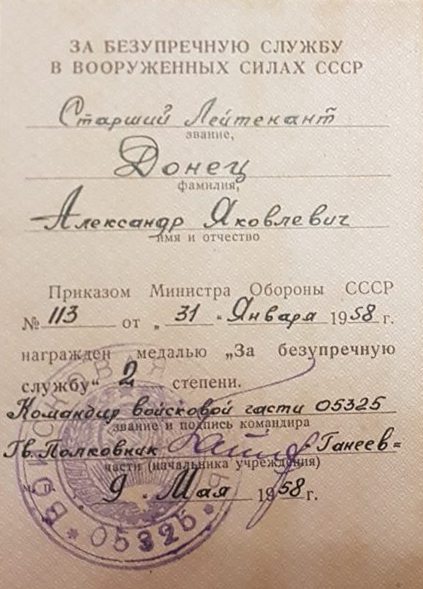 ЗА БЕЗУПРЕЧНУЮ СЛУЖБУ
В ВООРУЖЕННЫХ СИЛАХ СССР
Старший Лейтенант
звание,
Донец
фамилия,
Александр Яковлевич
имя и отчество
Приказом Министра Обороны СССР
№ 113 от „31“ Января 1958 г.
награжден медалью „За безупречную
службу“ 2 степени.
Командир войсковой части 05325
звание и подпись командира
Гв. Полковник =Ганеев=
части (начальника учреждения)
„9“ Мая 1958 г.
ВОЙСКОВАЯ Ч
* 05325 *